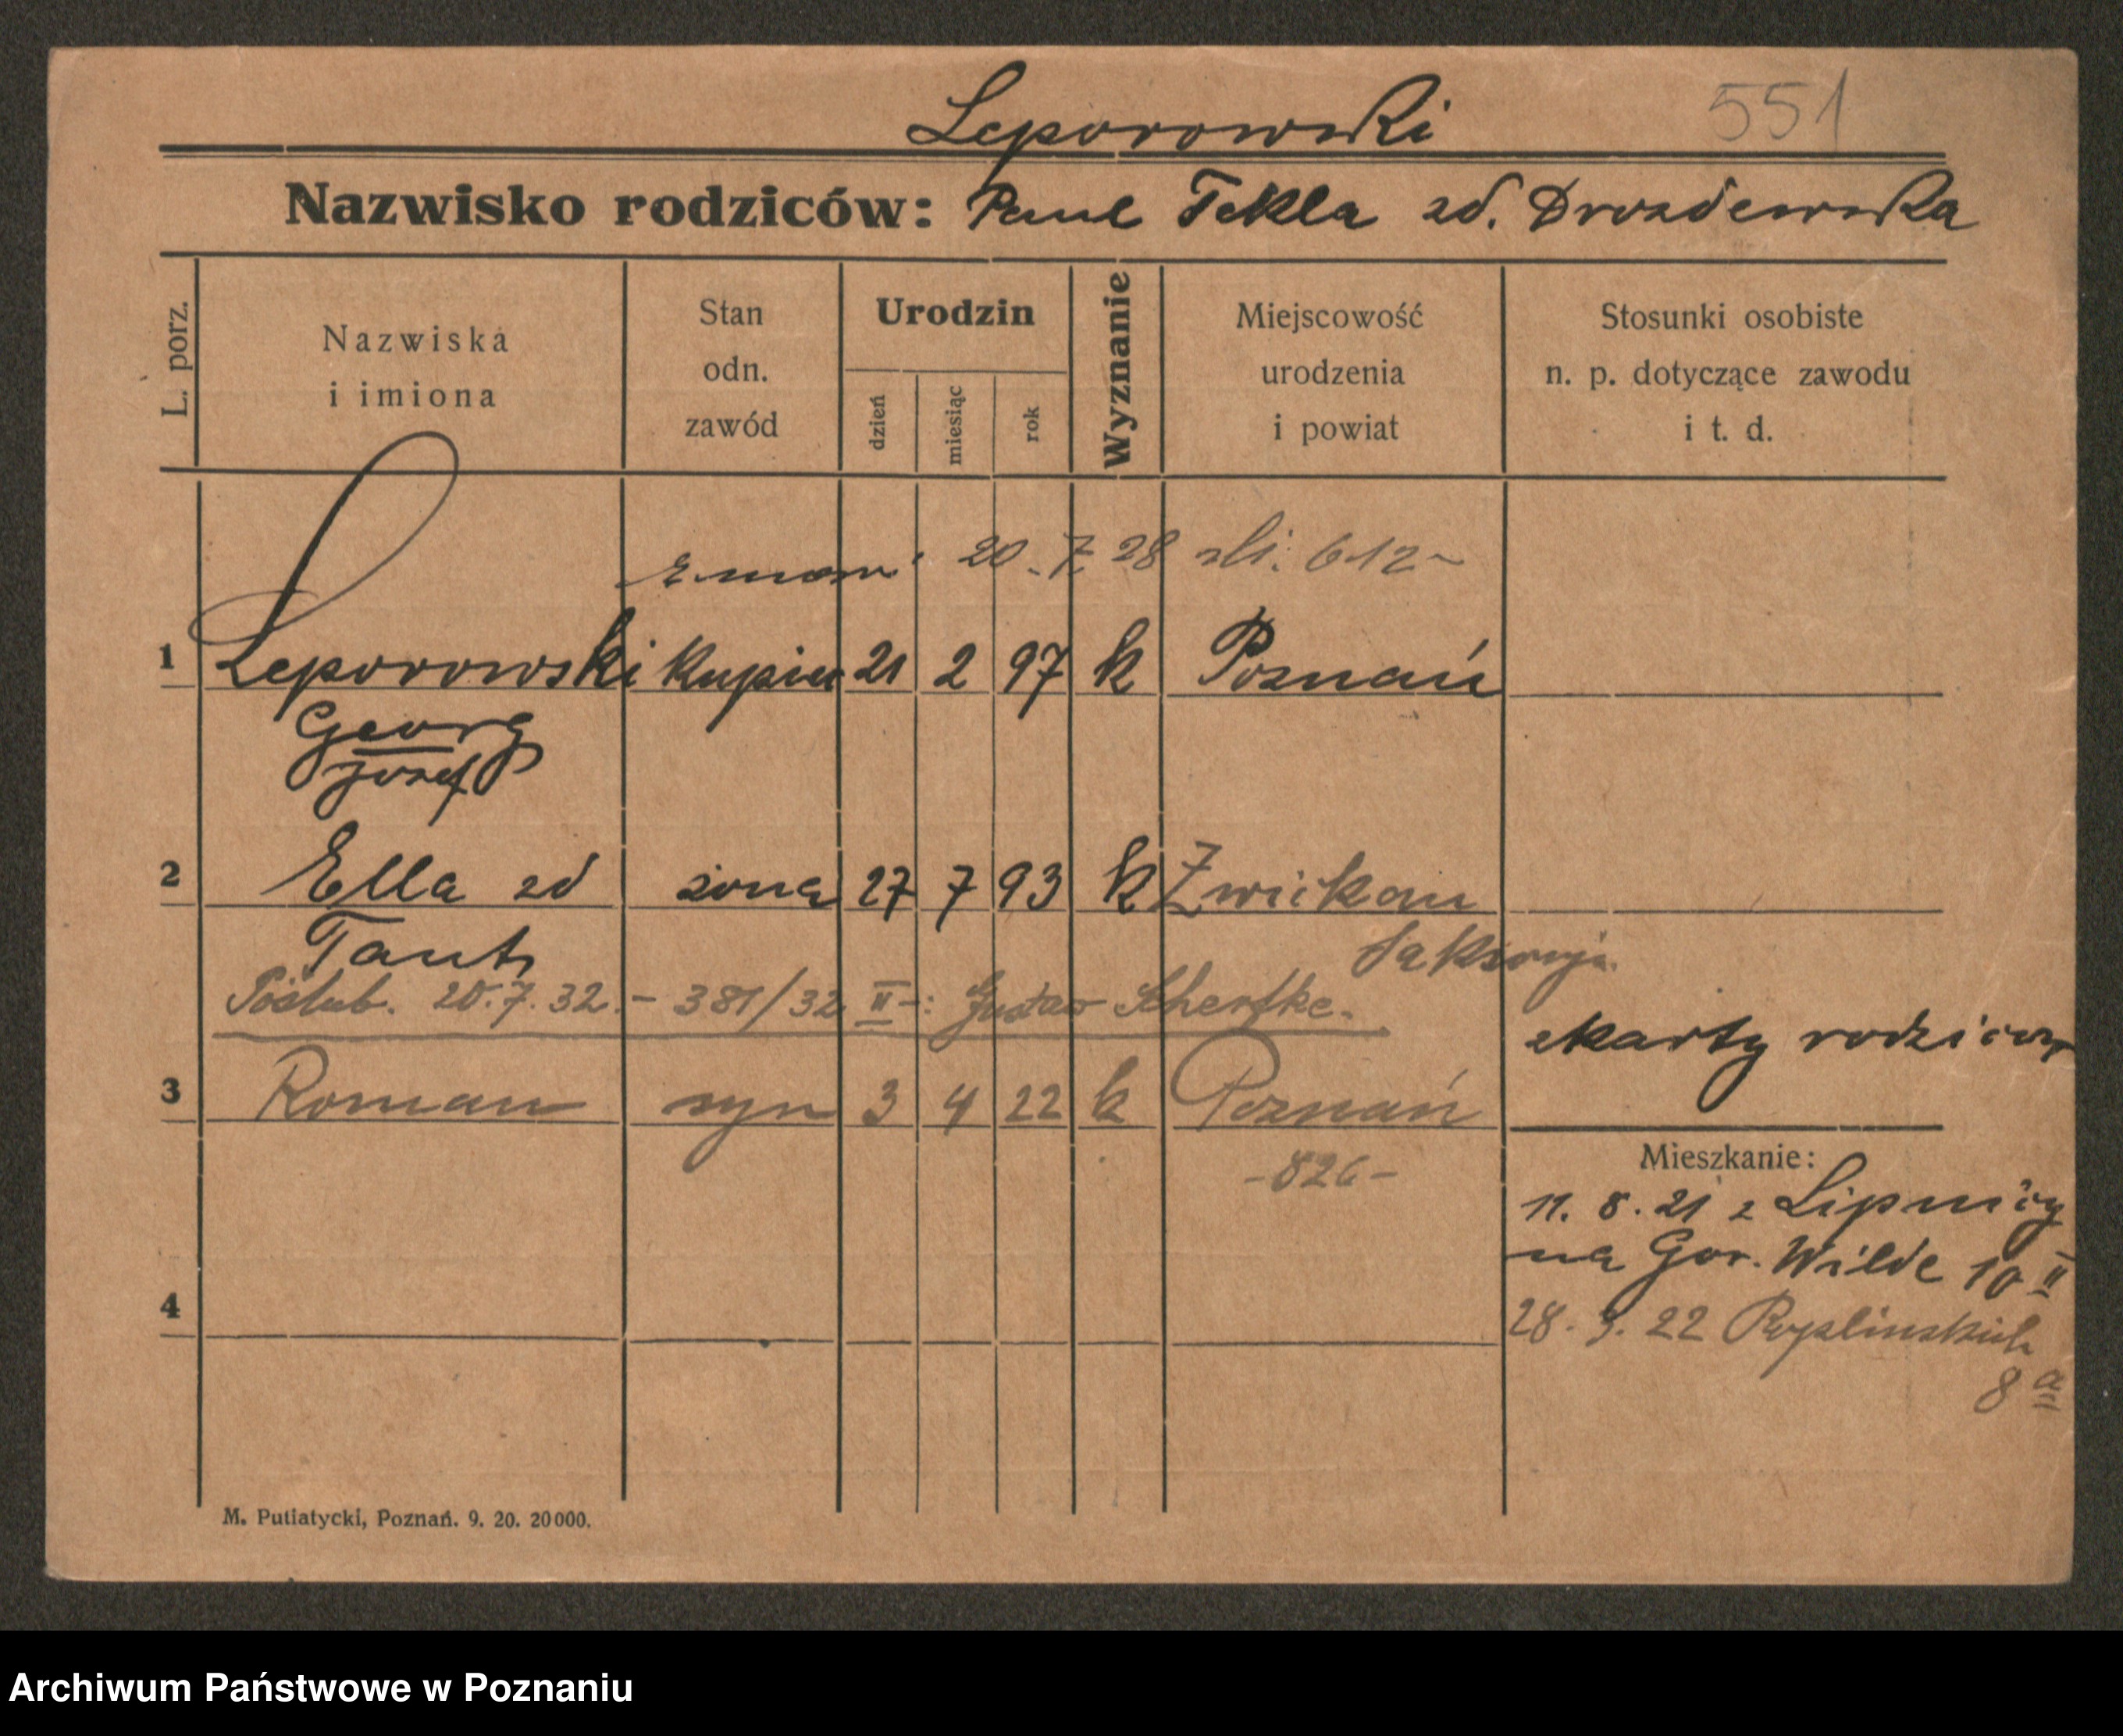 Leporowski 551
Nazwisko rodziców: Paul Tekla zd. Drozdewska
L. porz.
Nazwiska
i imiona
Stan
odn.
zawód
Urodzin
dzień
miesiąc
rok
Wyznanie
Miejscowość
urodzenia
i powiat
Stosunki osobiste
n. p. dotyczące zawodu
i t. d.
20. 7. 28 612
1 Leporowski Kupiec 21 2 97 k Poznań
Georg
Josef
2 Ella zd żona 27 7 93 k Zwickau
Taut
Saksonja.
Poślub. 20.7.32. - 381/32 II-: Gustaw
z karty rodziców
3 Roman syn 3 4 22 k Poznań
-826-
Mieszkanie:
11. 8. 21 z Lipnicy
na Gór. Wilde 10 II
28. 3. 22
8 a
4
M. Putiatycki, Poznań. 9. 20. 20000.
Archiwum Państwowe w Poznaniu